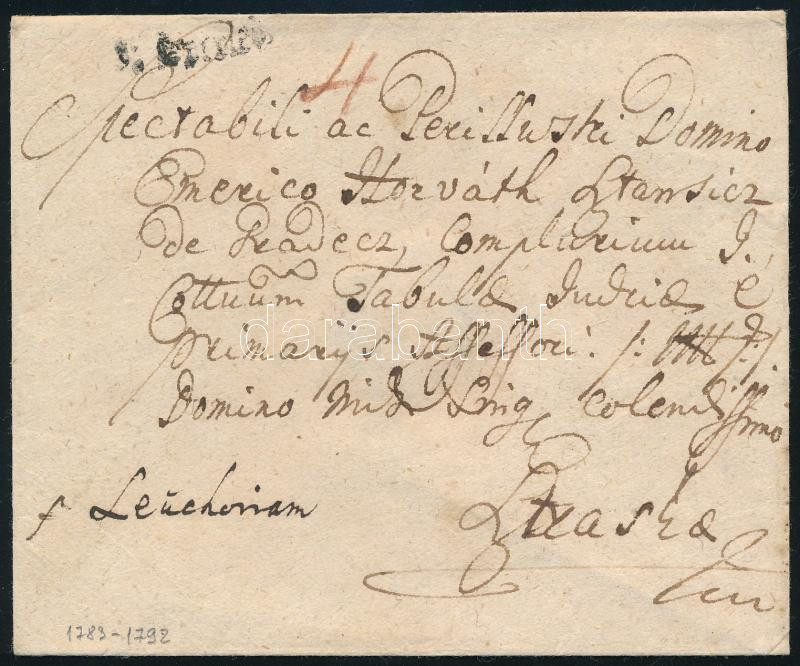 4
Spectabili ac Perillustri Domino
Emerico Horváth Stansicz
de Gradecz, Complurium I.
Cottuum Tabulæ Judriæ è
primarijs Assessori.
Domino mihi Sing colendissimo
p Leuchoviam
Straskæ
1783-1792
darabanth